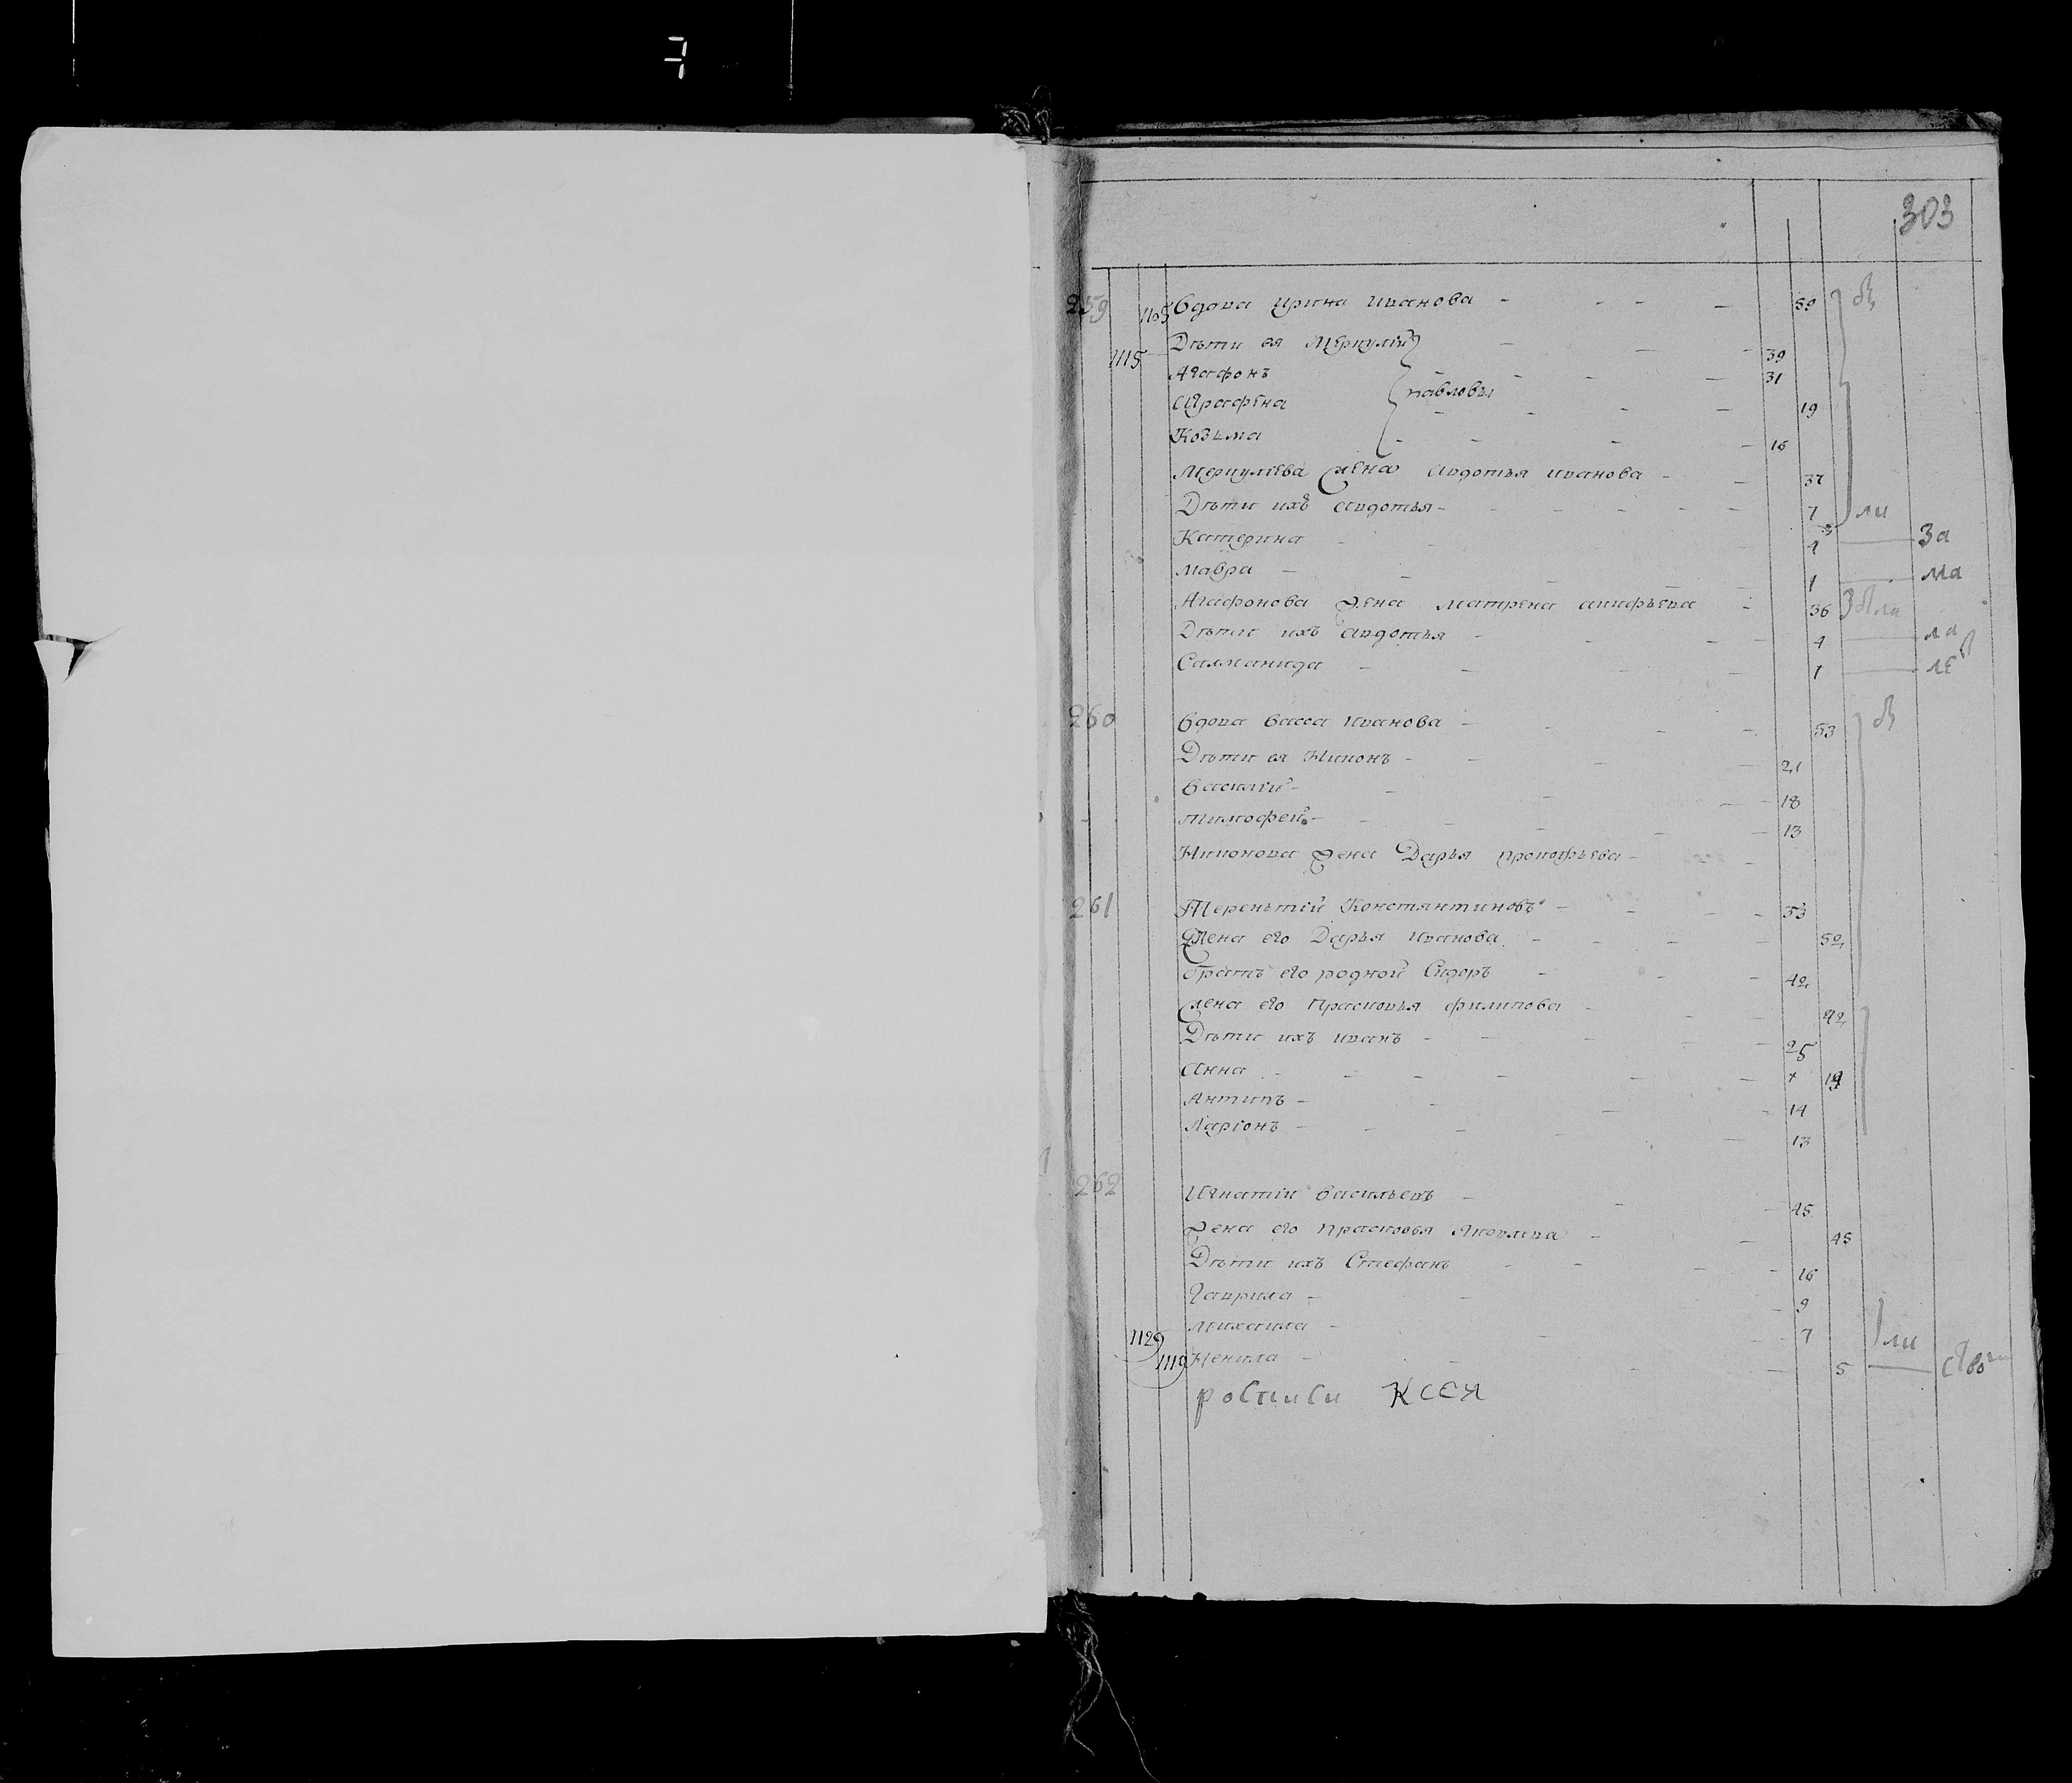 303
259 1105 Вдова Ирина Иванова - - - - 59
1115 Дѣти ея Меркулій - - - 39
Агафонъ - - - - 31
Аграфена } Павловы - - - - 19
Козьма - - - - 16
Меркулѣева жена Авдотья Иванова - - 37
Дѣти ихъ Авдотья - - - - - - 7 ли
Катерина - - - 4 За
Мавра - - - - 1 ма
Агафонова жена Матрена - 36
Дѣти ихъ Авдотья - - - - 4 ла
Саломанида - - - - 1 ле
260 Вдова Васса Иванова - - - - 53
Дѣти ея Никонъ - - - - 21
Василій - - - - 18
Тимофей - - - - - - 13
Никонова жена Дарья Прокофьева - -
261 Терентий Констянтиновъ - - - - 53
Жена его Дарья Иванова - - - - 52
братъ его родной Сидоръ - - - 42
Жена его Прасковья Филипова - - - 42
Дѣти ихъ Иванъ - - - - - 25
Анна - - - - - - 19
Антипъ - - - - 14
Ларіонъ - - - - - 13
262 Игнатіи Васильевъ - - - 45
Жена его Прасковья Яковлева - - 45
Дѣти ихъ Стефанъ - - - - 16
Гаврила - - - 9
Михаила - - - 7 ли
1129 1119 Ненила - - - - 5
росписи